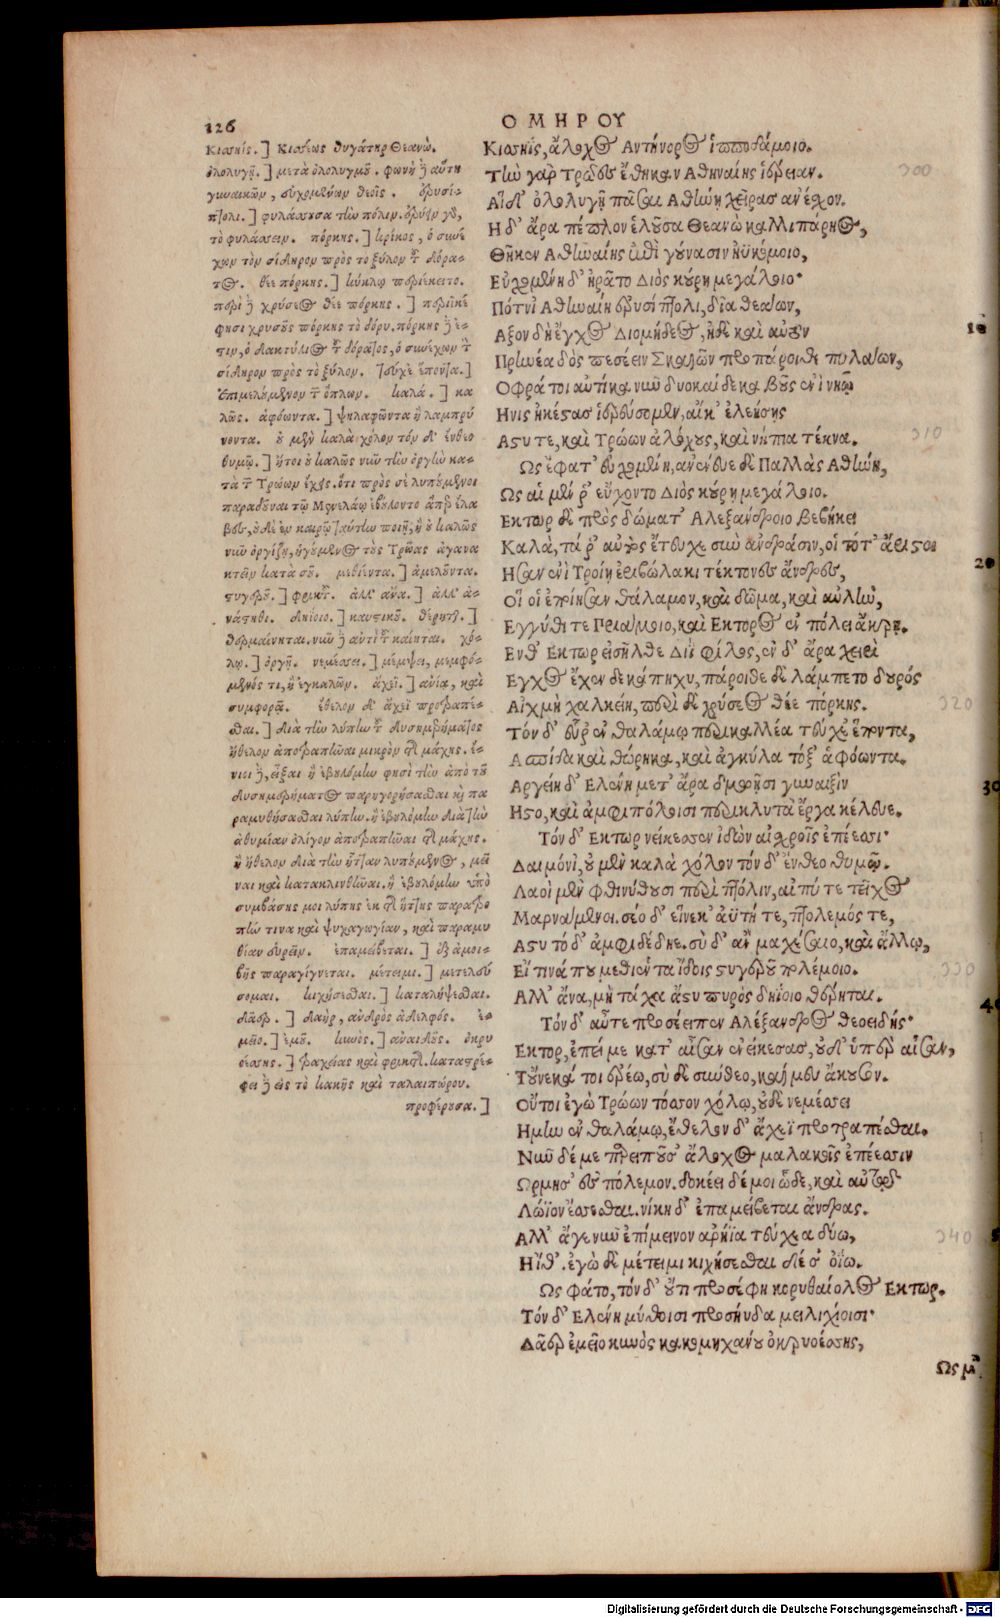 126
ΟΜΗΡΟΥ
Κιασηίς.] Κιασέως θυγάτηρ Θεανώ.
ὀλολυγῇ.] μετὰ ὀλολυγμοῦ. φωνὴ ἢ αὕτη
γυναικῶν, εὐχομένων θεοῖς. ἐρυσί-
πτολι.] φυλάσσουσα τὴν πόλιν. ἐρύειν γὰρ,
τὸ φυλάσσειν. πόρκης.] κρίκος, ὁ συνέ-
χων τὸν σίδηρον πρὸς τὸ ξύλον τοῦ δόρα-
τος. θέε πόρκης.] κύκλῳ περιέκειτο.
περὶ ἢ χρύσεος θέε πόρκης.]
φησι χρυσοῦς πόρκης τὸ δόρυ. πόρκης ἢ ἐ-
στιν, ὁ δακτύλιος τοῦ δόρατος, ὁ συνέχων τὸν
σίδηρον πρὸς τὸ ξύλον. τεύχε' ἕποντα.]
ἐπιμελούμενον τῶν ὅπλων. καλά.] κα
λῶς. ἁφόωντα.] ψηλαφῶντα ἢ λαμπρύ
νοντα. οὐ μὲν καλὰ χόλον τόν δ' ἔνθεο
θυμῷ.] ἤτοι οὐ καλῶς νῦν τὴν ὀργὴν κα-
τὰ τῶν Τρώων ἔχεις. ὅτι πρὸς σὲ λυπούμενοι
παραδοῦναι τῷ Μενελάῳ ἐβούλοντο
νῦν ὀργίζῃ, ἡγούμενος τοὺς Τρῶας ἀγανα
κτεῖν κατὰ σοῦ. μεθιέντα.] ἀμελοῦντα.
στυγεροῦ.] φρικτοῦ. ἀλλ' ἄνα.] ἀλλ' ἀ-
νάστηθι. δηΐοιο.] καυστικοῦ. θέρηται.]
θερμαίνηται. νῦν ἢ ἀντὶ τοῦ καίηται. χό-
λῳ.] ὀργῇ. νεμέσσει.] μέμψει, μεμφό-
μενός τι, ἢ ἐγκαλῶν. ἄχεϊ.] ἀνίᾳ, καὶ
συμφορᾷ. ἔθελον δ' ἄχεϊ προτραπέ-
σθαι.] διὰ τὴν λύπην τοῦ δυσημερήματος
ἤθελον ἀποτραπῆναι μικρὸν τῆς μάχης. ἔ-
νιοι ἢ, εἶξαι ἢ ἐβουλόμην φησὶ τὴν ἀπὸ τοῦ
δυσημερήματος παρηγορήσασθαι καὶ πα
ραμυθήσασθαι λύπην. ἢ ἐβουλόμην διὰ τὴν
ἀθυμίαν ὀλίγον ἀποτραπῆναι τῆς μάχης.
ἢ ἤθελον διὰ τὴν ἧτταν λυπούμενος, μεῖ
ναι καὶ κατακλινθῆναι. ἢ ἐβουλόμην ὑπὸ
συμβάσης μοι λύπης ἐκ τῆς ἥττης παρατρο
πήν τινα καὶ ψυχαγωγίαν, καὶ παραμυ
θίαν εὑρεῖν. ἐπαμείβεται.] ἐξ ἀμοι-
βῆς παραγίγνεται. μέτειμι.] μετελεύ
σομαι. κιχήσεσθαι.] καταλήψεσθαι.
δᾶερ.] δαὴρ, ἀνδρὸς ἀδελφός. ἐ-
μεῖο.] ἐμοῦ. κυνὸς.] ἀναιδοῦς. ὀκρυ
οέσσης.] τραχείας καὶ φρικτῆς. καταστρέ-
φει ἢ εἰς τὸ κακῆς καὶ ταλαιπώρου.
προφέρουσα.]
Κιασηίς, ἄλοχος Ἀντήνορος ἱπποδάμοιο.
Τὴν γὰρ Τρῶες ἔθηκαν Ἀθηναίης ἱέρειαν.
Αἵ δ' ὀλολυγῇ πᾶσαι Ἀθήνῃ χεῖρας ἀνέσχον.
Ἡ δ' ἄρα πέπλον ἑλοῦσα Θεανὼ καλλιπάρῃος,
Θῆκεν Ἀθηναίης ἐπὶ γούνασιν ἠϋκόμοιο,
Εὐχομένη δ' ἠρᾶτο Διὸς κούρῃ μεγάλοιο·
Πότνι' Ἀθηναίη ἐρυσίπτολι, δῖα θεάων,
Ἆξον δὴ ἔγχος Διομήδεος, ἠδὲ καὶ αὐτὸν
Πρηνέα δὸς πεσέειν Σκαιῶν προπάροιθε πυλάων,
Ὄφρά τοι αὐτίκα νῦν δυοκαίδεκα βοῦς ἐνὶ νηῷ
Ἤνις ἠκέστας ἱερεύσομεν, αἴ κ' ἐλεήσῃς
Ἄστυ τε, καὶ Τρώων ἀλόχους, καὶ νήπια τέκνα.
Ὣς ἔφατ' εὐχομένη, ἀνένευε δὲ Παλλὰς Ἀθήνη,
Ὣς αἱ μέν ῥ' εὔχοντο Διὸς κούρῃ μεγάλοιο.
Ἕκτωρ δὲ πρὸς δώματ' Ἀλεξάνδροιο βεβήκει
Καλὰ, τά ῥ' αὐτὸς ἔτευξε σὺν ἀνδράσιν, οἳ τότ' ἄριστοι
Ἦσαν ἐνὶ Τροίῃ ἐριβώλακι τέκτονες ἄνδρες,
Οἵ οἱ ἐποίησαν θάλαμον, καὶ δῶμα, καὶ αὐλὴν,
Ἐγγύθι τε Πριάμοιο, καὶ Ἕκτορος ἐν πόλει ἄκρῃ.
Ἔνθ' Ἕκτωρ εἰσῆλθε Διῒ φίλος, ἐν δ' ἄρα χειρὶ
Ἔγχος ἔχεν δεκάπηχυ, πάροιθε δὲ λάμπετο δουρός
Αἰχμὴ χαλκείη, περὶ δὲ χρύσεος θέε πόρκης.
Τόν δ' εὗρ' ἐν θαλάμῳ περικαλλέα τεύχε' ἕποντα,
Ἀσπίδα καὶ θώρηκα, καὶ ἀγκύλα τόξ' ἁφόωντα.
Ἀργείη δ' Ἑλένη μετ' ἄρα δμωῇσι γυναιξὶν
Ἧστο, καὶ ἀμφιπόλοισι περικλυτὰ ἔργα κέλευε.
Τόν δ' Ἕκτωρ νείκεσσεν ἰδὼν αἰσχροῖς ἐπέεσσι·
Δαιμόνι', οὐ μὲν καλὰ χόλον τόν δ' ἔνθεο θυμῷ.
Λαοὶ μὲν φθινύθουσι περὶ πτόλιν, αἰπύ τε τεῖχος
Μαρνάμενοι. σέο δ' εἵνεκ' ἀϋτή τε, πτόλεμός τε,
Ἄστυ τό δ' ἀμφιδέδηε. σὺ δ' ἂν μαχέσαιο, καὶ ἄλλῳ,
Εἴ τινά που μεθιέντα ἴδοις στυγεροῦ πολέμοιο.
Ἀλλ' ἄνα, μὴ τάχα ἄστυ πυρὸς δηΐοιο θέρηται.
Τόν δ' αὖτε προσέειπεν Ἀλέξανδρος θεοειδής·
Ἕκτορ, ἐπεί με κατ' αἶσαν ἐνείκεσας, οὐδ' ὑπὲρ αἶσαν,
Τοὔνεκά τοι ἐρέω, σὺ δὲ σύνθεο, καί μευ ἄκουσον.
Οὔτοι ἐγὼ Τρώων τόσσον χόλῳ, οὐδὲ νεμέσσει
Ἥμην ἐν θαλάμῳ, ἔθελον δ' ἄχεϊ προτραπέσθαι.
Νῦν δέ με παρειποῦσ' ἄλοχος μαλακοῖς ἐπέεσσιν
Ὥρμησ' ἐς πόλεμον. δοκέει δέ μοι ὧδε, καὶ αὐτῷ
Λώϊον ἔσσεσθαι. νίκη δ' ἐπαμείβεται ἄνδρας.
Ἀλλ' ἄγε νῦν ἐπίμεινον ἀρήϊα τεύχεα δύω,
Ἢ ἴθ'. ἐγὼ δὲ μέτειμι κιχήσεσθαι δέ σ' ὀΐω.
Ὣς φάτο, τόν δ' οὔτι προσέφη κορυθαίολος Ἕκτωρ.
Τόν δ' Ἑλένη μύθοισι προσηύδα μειλιχίοισι·
Δᾶερ ἐμεῖο κυνὸς κακομηχάνου ὀκρυοέσσης,
Ὥς μ'
300
10
310
20
320
30
330
40
340
Digitalisierung gefördert durch die Deutsche Forschungsgemeinschaft - DFG